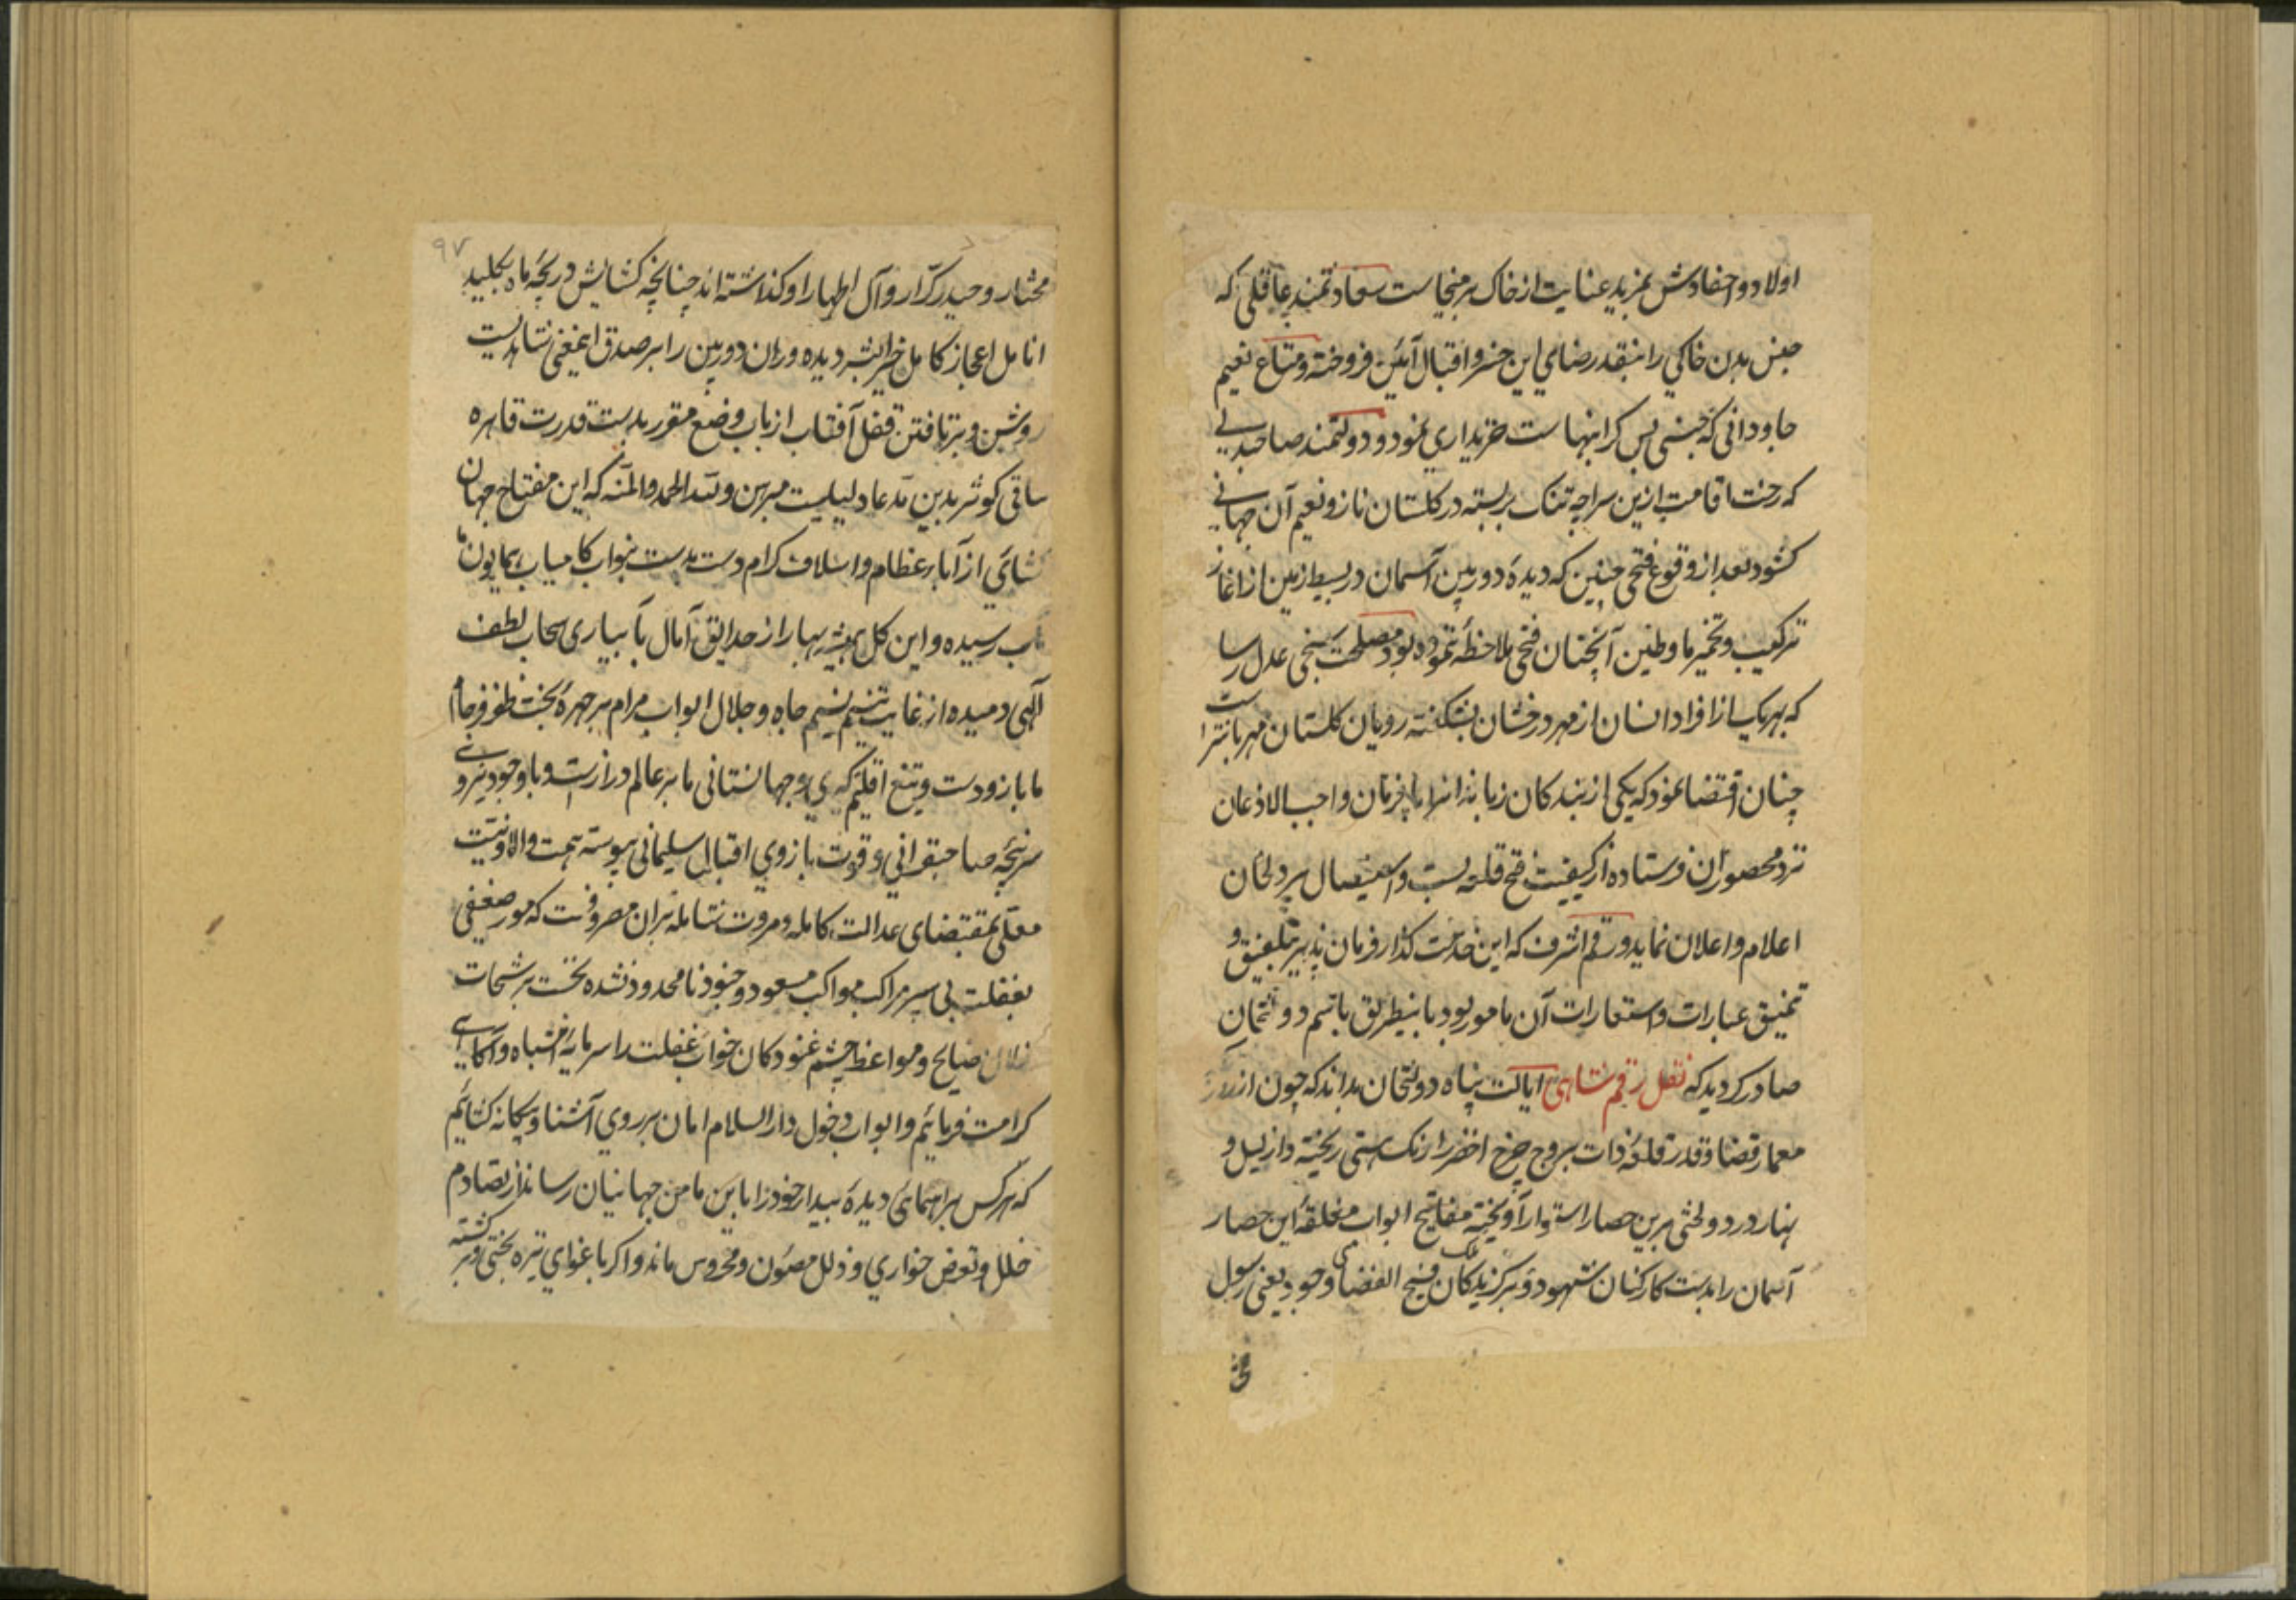 اولاد و احفادش بمزید عنایت از خاک برمیخاست سعادتمند عاقلی که
جنس بدن خاکی را بنقد رضای این خسرو اقبال آئین فروخته و متاع نعیم
جاودانی که جنسی بس کرانبهاست خریداری نمود و دولتمند صاحبدلی
که رخت اقامت ازین سراچه تنک بربسته در کلستان ناز و نعیم آن جهانی
کشود بعد از وقوع فتحی چنین که دیدۀ دوربین آسمان در بسیط زمین از آغاز
ترکیب و تخمیر ما و طین آنچنان فتحی ملاحظه ننموده بود مصلحت سنجی عدل رسا
که بهریک از افراد انسان از مهر درخشان بشکفته رویان کلستان مهربانتر است
چنان اقتضا نمود که یکی از بندکان زبانه انرا با فرمان واجب الاذعان
نزد محصوران فرستاده از کیفیت فتح قلعه بست و استیصال پردلخان
اعلام و اعلان نماید و رقم اشرف که این خدمت کذار فرمان پذیر بتلفیق و
تنمیق عبارات و استعارات آن مامور بود باینطریق باسم دولتخان
صادر کردید که نقل رقم شاهی ایالت پناه دولتخان بداند که چون از روز
معمار قضا و قدر قلعۀ ذات بروج چرخ اخضر را رنک هستی ریخته و از لیل و
نهار در دولختی برین حصار استوار آویخته مفاتیح ابواب مغلقۀ این حصار
آسمان را بدست کارکنان شهود و برکزیدکان ملک فسیح الفضای وجود یعنی رسول
مختار و حیدر کرّار و آل اطهار او کذاشته اند چنانچه کشایش دریچۀ ماه بکلید
انامل اعجاز کامل خیر البشر دیده وران دوربین را بر صدق اینمعنی شاهدیست
روشن و برتافتن قفل آفتاب از باب وضع مقرر بدست قدرت قاهره
ساقی کوثر بدین مدعا دلیلیست مبرهن و لله الحمد والمنه که این مفتاح جهان
کشائی از آباء عظام و اسلاف کرام دست بدست بنواب کامیاب همایون ما
رسیده و این کل همیشه بهار از حدایق آمال بآبیاری سحاب لطف
الهی دمیده از غایت تنسیم نسیم جاه و جلال ابواب مرام بر چهرۀ بخت ظفر فرجام
ما باز و دست و تیغ اقلیم کیری و جهانستانی ما بر عالم دراز است و با وجود نیروی
سرپنجۀ صاحبقرانی و قوت بازوی اقبال سلیمانی پیوسته همت والا و نیت
معلی بمقتضای عدالت کامله و مروت شامله بران مصروفست که مور ضعیفی
بغفلت پی سپر مراکب مواکب مسعود و جنود نامحدود نشده نخست برشحات
زلال نصایح و مواعظ چشم غنودکان خواب غفلت را سرمایۀ انتباه و آکاهی
کرامت فرمائیم و ابواب دخول دار السلام امان بر روی آشنا و بیکانه کشائیم
که هرکس براهنمائی دیدۀ بیدار خود را باین مامن جهانیان رساند از تصادم
خلل و تعرض خواری و ذلل مصئون و محروس ماند و اکر باغوای تیره بختی و برکشته